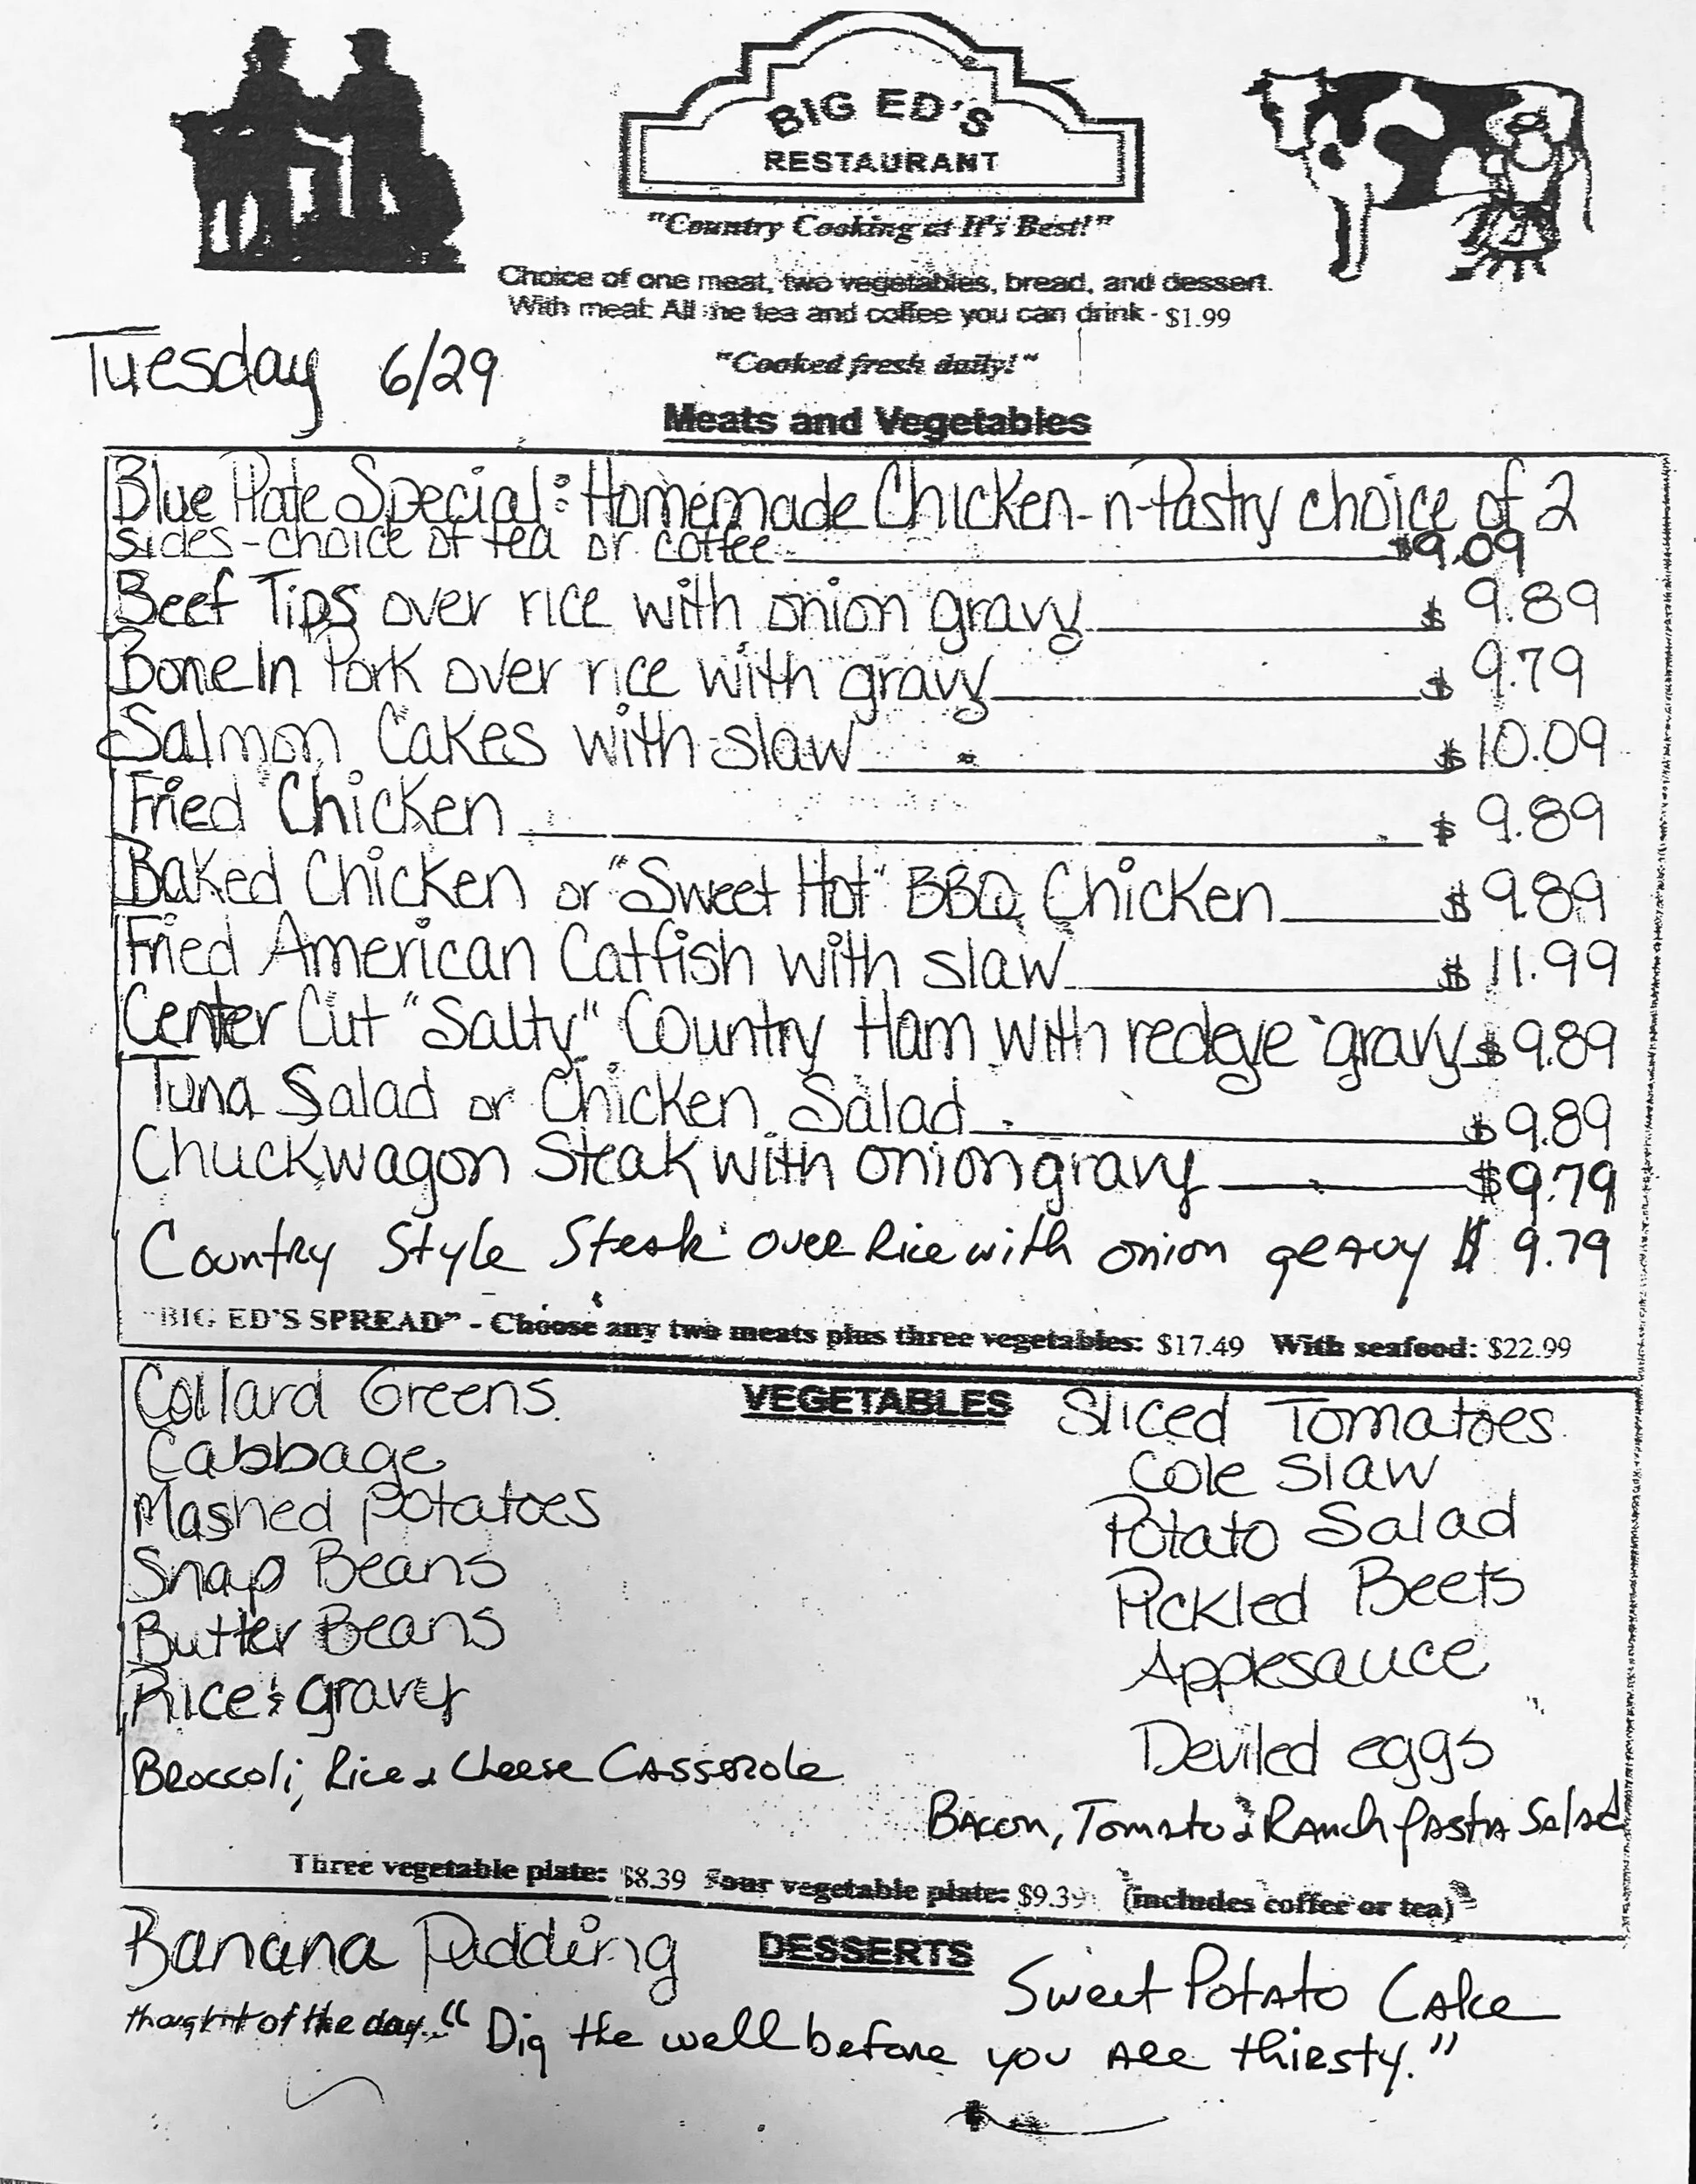 BIG ED'S
RESTAURANT
"Country Cooking at It's Best!"
Choice of one meat, two vegetables, bread, and dessert.
With meal: All the tea and coffee you can drink - $1.99
Tuesday 6/29
"Cooked fresh daily!"
Meats and Vegetables
Blue Plate Special: Homemade Chicken-n-Pastry choice of 2
sides-choice of tea or coffee $9.09
Beef Tips over rice with onion gravy $9.89
Bone In Pork over rice with gravy $9.79
Salmon Cakes with slaw $10.09
Fried Chicken $9.89
Baked Chicken or "Sweet Hot" BBQ Chicken $9.89
Fried American Catfish with slaw $11.99
Center Cut "Salty" Country Ham with redeye gravy $9.89
Tuna Salad or Chicken Salad $9.89
Chuckwagon Steak with onion gravy $9.79
Country Style Steak over Rice with onion gravy $9.79
"BIG ED'S SPREAD" - Choose any two meats plus three vegetables: $17.49 With seafood: $22.99
VEGETABLES
Collard Greens
Cabbage
Mashed potatoes
Snap Beans
Butter Beans
Rice & gravy
Broccoli, Rice & Cheese Casserole
Sliced Tomatoes
Cole Slaw
Potato Salad
Pickled Beets
Applesauce
Deviled eggs
Bacon, Tomato & Ranch Pasta Salad
Three vegetable plate: $8.39 Four vegetable plate: $9.39 (includes coffee or tea)
DESSERTS
Banana Pudding
Sweet Potato Cake
thought of the day... "Dig the well before you are thirsty."